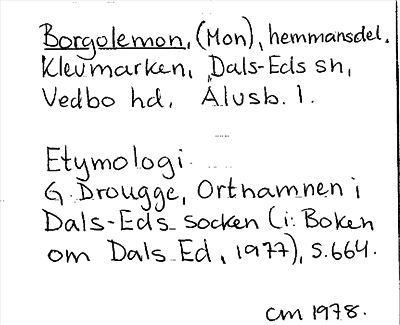 Borgolemon, (Mon), hemmansdel.
Klevmarken, Dals-Eds sn,
Vedbo hd, Älvsb. l.
Etymologi
G. Drougge, Ortnamnen i
Dals-Eds socken (i: Boken
om Dals Ed, 1977), s. 664.
cm 1978.